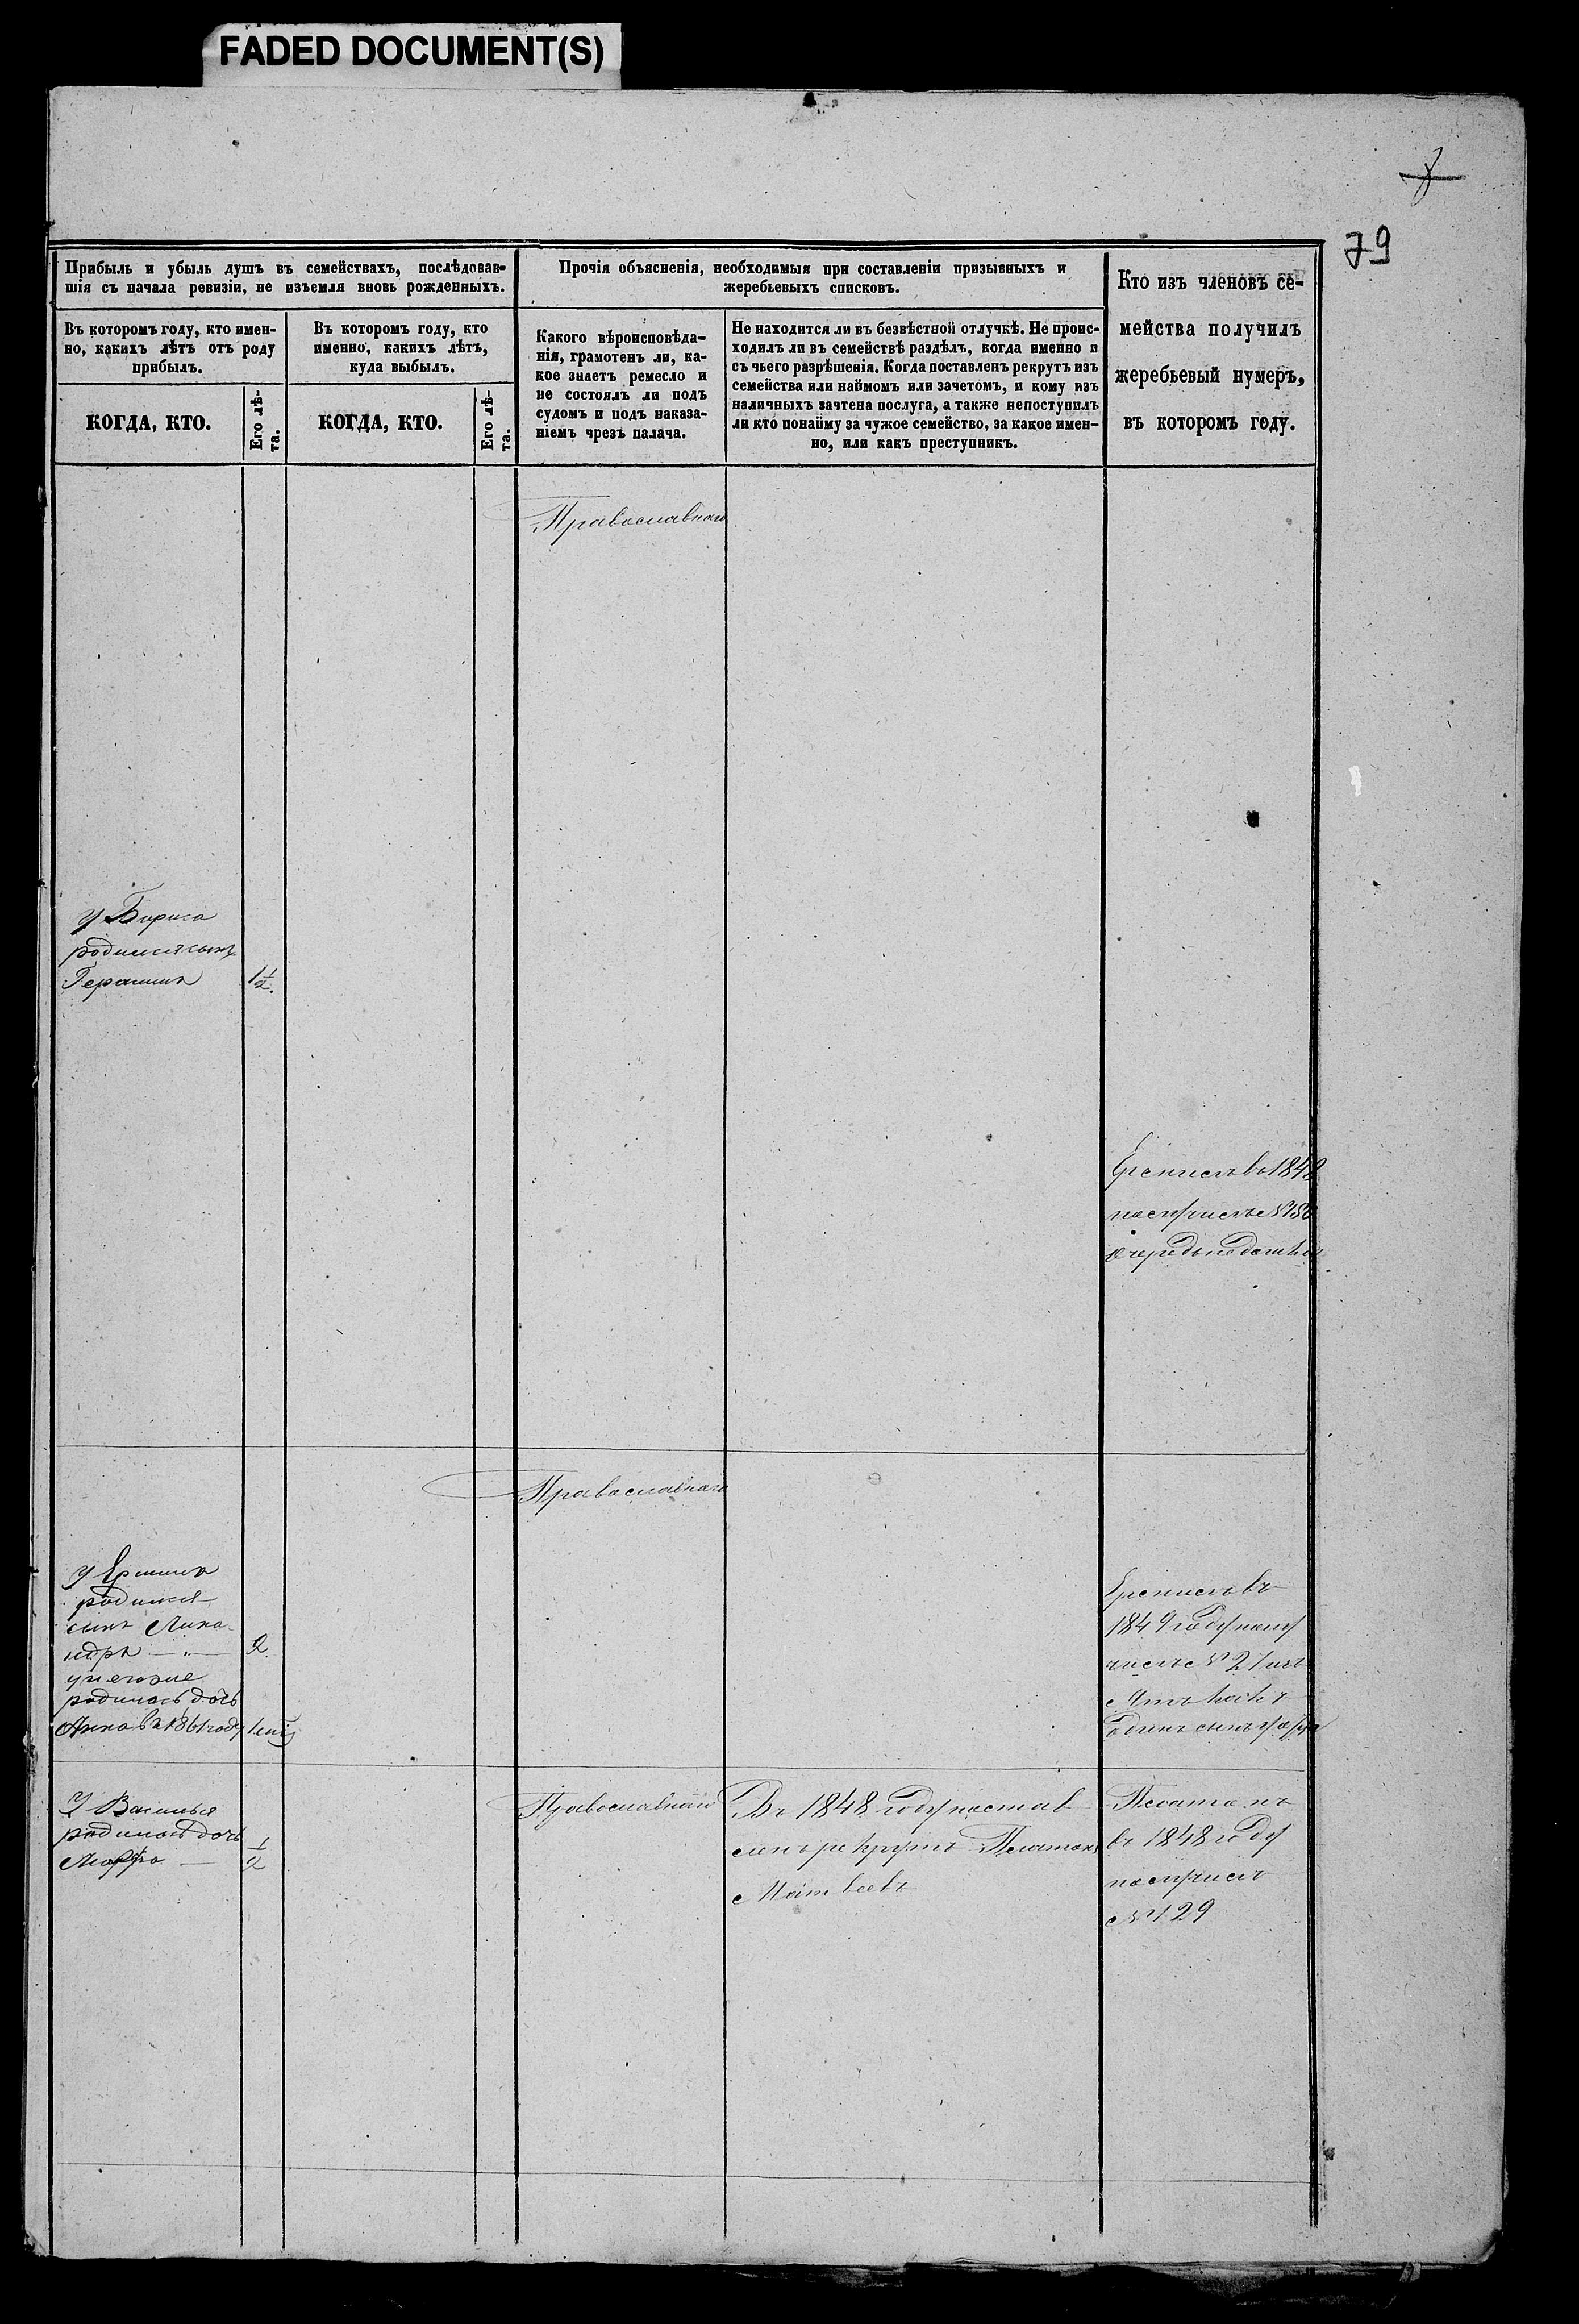 FADED DOCUMENT(S)
79
Прибыль и убыль душъ въ семействахъ, послѣдовав-
шія съ начала ревизіи, не изъемля вновь рожденныхъ.
Прочія объясненія, необходимыя при составленіи призывныхъ и
жеребьевыхъ списковъ.
Кто изъ членовъ се-
мейства получилъ
жеребьевый нумеръ,
въ которомъ году.
Въ которомъ году, кто имен-
но, какихъ лѣтъ отъ роду
прибылъ.
Въ которомъ году, кто
именно, какихъ лѣтъ,
куда выбылъ.
Какого вѣроисповѣда-
нія, грамотенъ ли, ка-
кое знаетъ ремесло и
не состоялъ ли подъ
судомъ и подъ наказа-
ніемъ чрезъ палача.
Не находится ли въ безвѣстной отлучкѣ. Не проис-
ходилъ ли въ семействѣ раздѣлъ, когда именно и
съ чьего разрѣшенія. Когда поставленъ рекрутъ изъ
семейства или наймомъ или зачетомъ, и кому изъ
наличныхъ зачтена послуга, а также непоступилъ
ли кто понайму за чужое семейство, за какое имен-
но, или какъ преступникъ.
КОГДА, КТО.
Его лѣ-
та.
КОГДА, КТО.
Его лѣ-
та.
Православнаго
У Бориса
родился сынъ
Герасимъ 1 1/2.
въ 1848
Православнаго
У
родился
сынъ Лика-
ндръ — „ — 2.
у него же
родилась дочь
Анна въ 1861 году
въ
1849 году
№ 27
одинъ сынъ
У Василья
родилась дочь
Марфа — 1/2
Православнаго
Въ 1848 году постав
ленъ рекрутъ Платонъ
Матвеевъ
Платонъ
въ 1848 году
№ 129